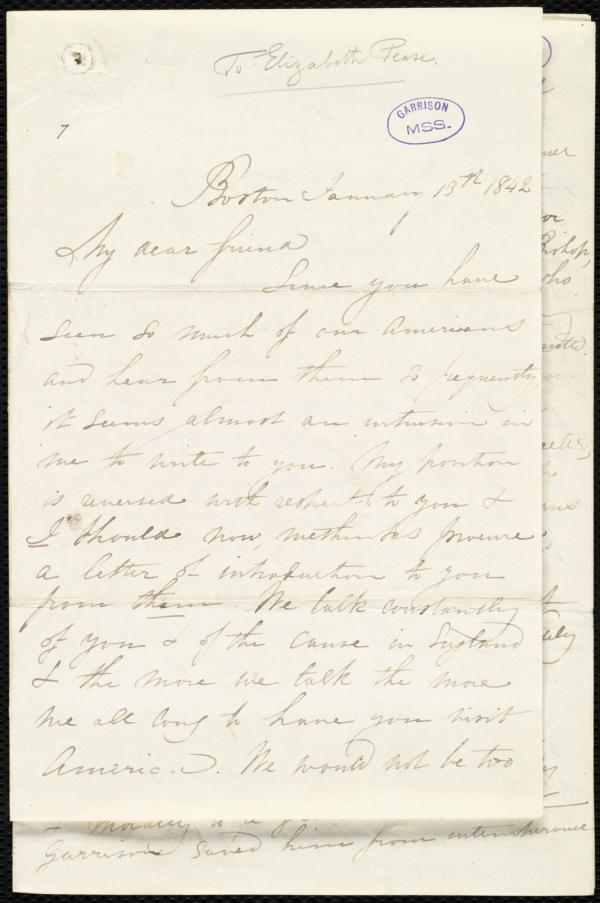 To Elizabeth Pease.
GARRISON
MSS.
7
Boston January 13th 1842
My dear friend
Since you have
seen so much of our Americans
and hear from them so frequently,
it seems almost an intrusion in
me to write to you. My position
is reversed with respect to you &
I should now, methinks procure
a letter of introduction to you
from them. We talk constantly
of you & of the cause in England
& the more we talk the more
we all long to have you visit
America. We would not be too
Bishop,
who
& morally
Garrison saved him from intemperance